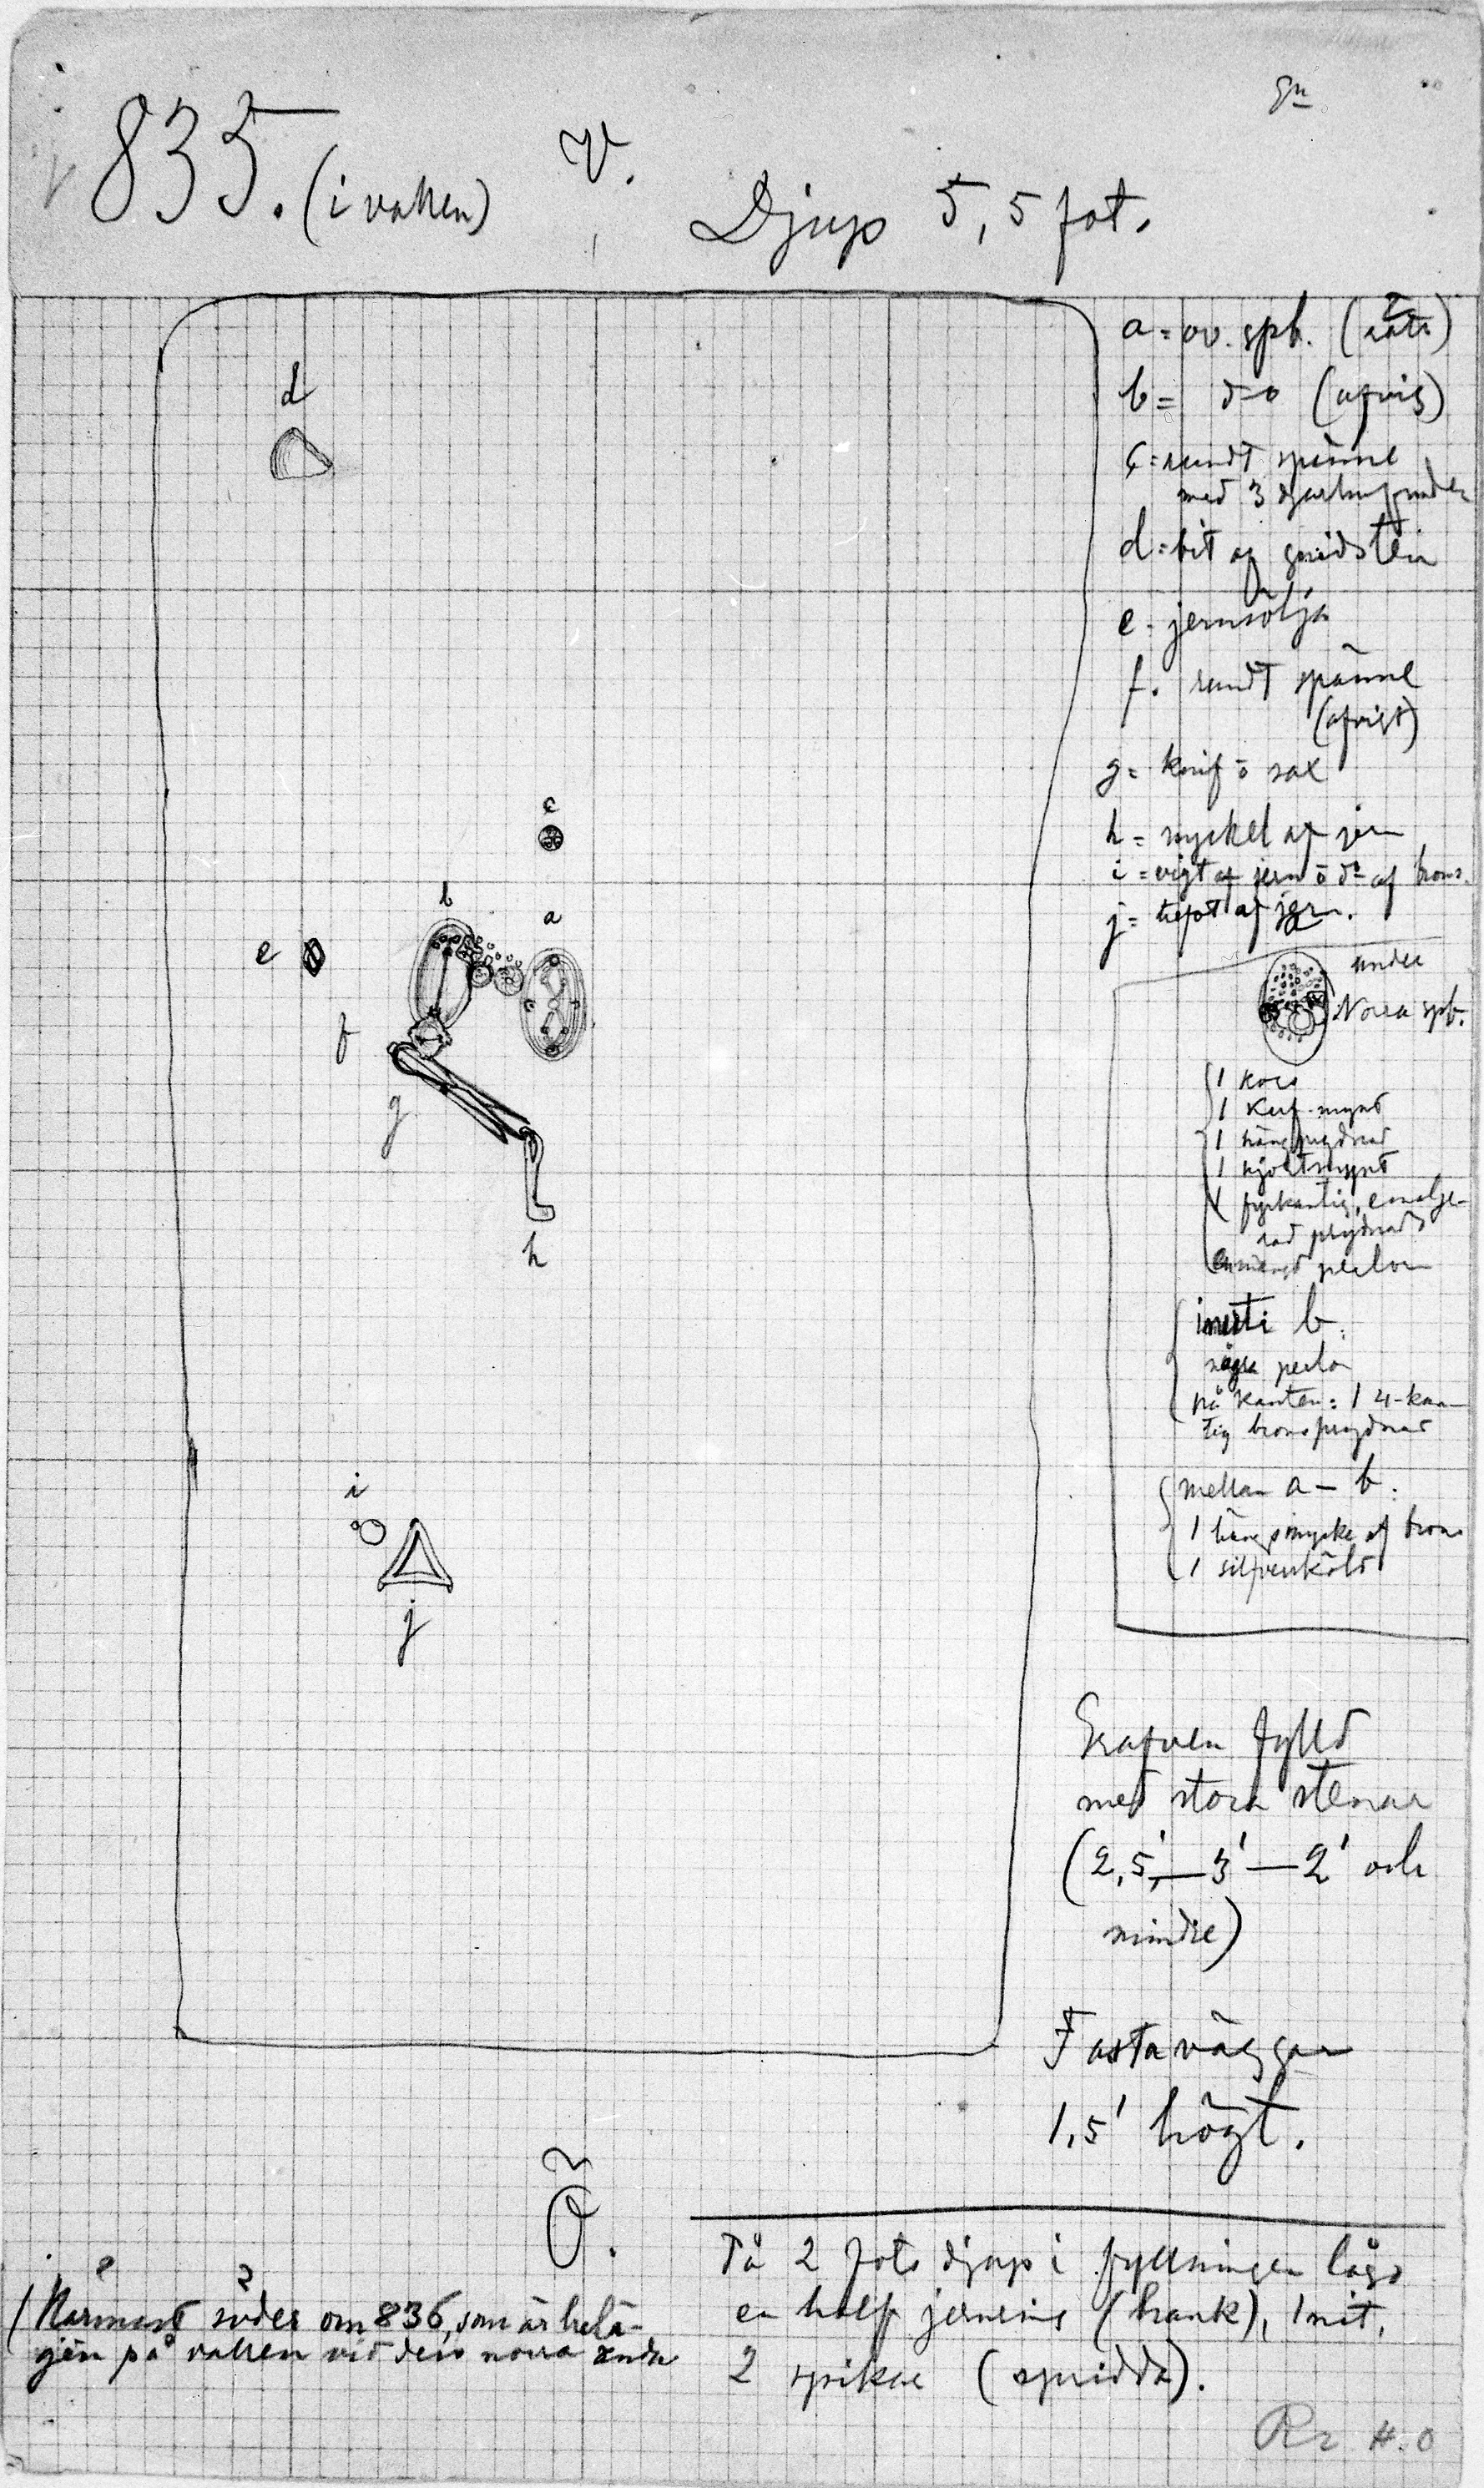 835. (i vallen)
V.
Djup 5,5 fot.
a = ov. spb. (rätt)
b = d-o (afvig)
c = rundt spänne
med 3 djurhufvuden
d = bit af gnidsten
e = jernsölja
f. rundt spänne
(afvigt)
g = knif o sax
h = nyckel af jern
i = vigt af jern o do af brons.
j = trefot af jern.
d
c
b
a
e
f
g
h
i
j
under
Norra spb.
1 kors
1 Kuf. mynt
1 hängprydnad
1
1 fyrkantig, emalje-
rad prydnad
en mängd perlor
inuti b:
några perlor
på kanten: 1 4-kan-
tig bronsprydnad
mellan a - b:
1 hängsmycke af brons
1 silfversköld
Grafven fylld
med stora stenar
(2,5' — 3' — 2' och
mindre)
Fasta väggar
1,5' högt.
Ö.
(Närmast söder om 836, som är belä-
gen på vallen vid dess norra ända
På 2 fots djup i fyllningen lågo
en half jernring (hank), 1 nit,
2 spikar (spridda).